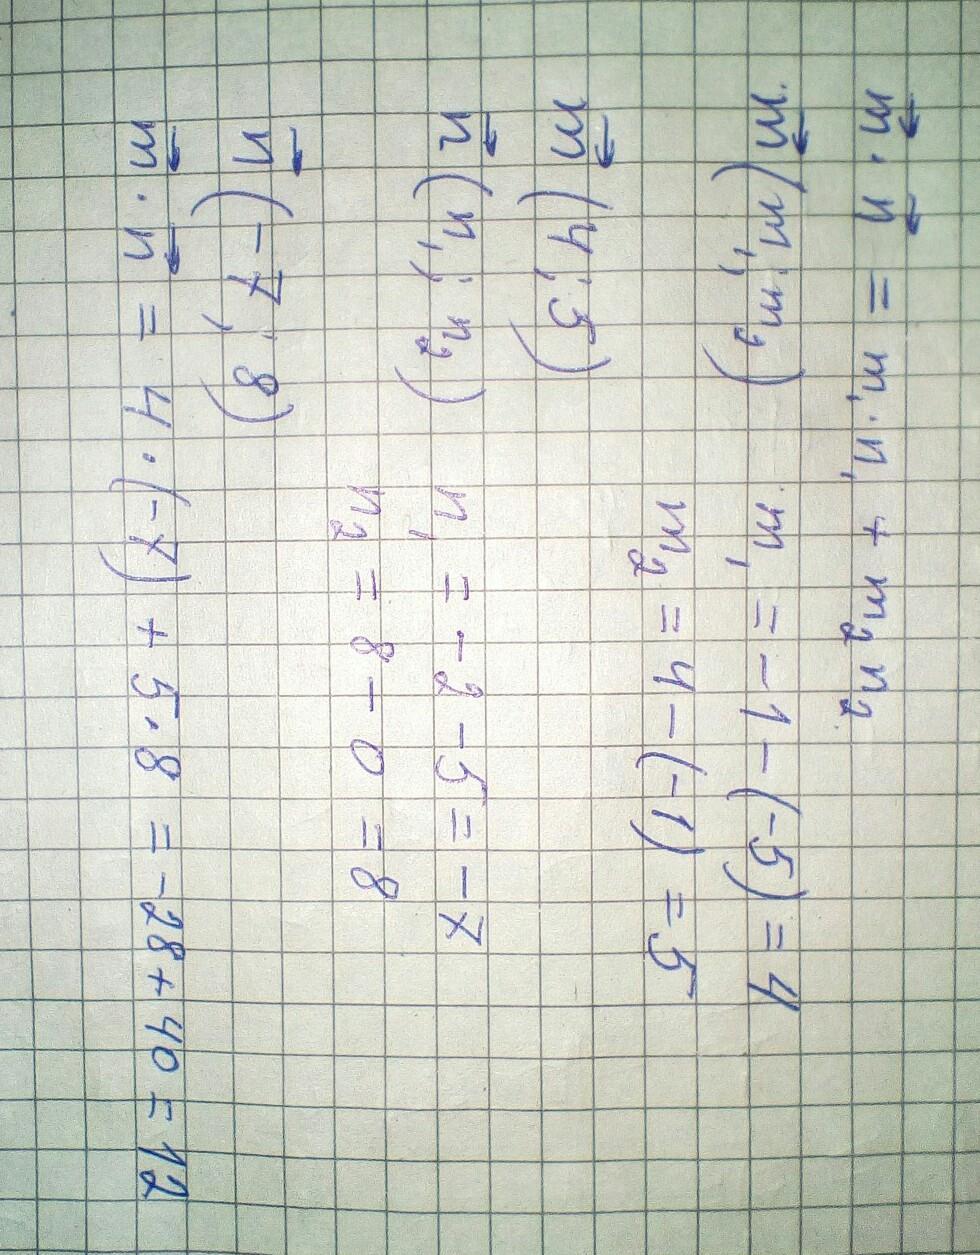 m⃗ · n⃗ = m₁ · n₁ + m₂ n₂
m⃗ (m₁; m₂) m₁ = -1 - (-5) = 4
m₂ = 4 - (-1) = 5
m⃗ (4; 5)
n⃗ (n₁; n₂) n₁ = -2 - 5 = -7
n₂ = 8 - 0 = 8
n⃗ (-7; 8)
m⃗ · n⃗ = 4 · (-7) + 5 · 8 = -28 + 40 = 12